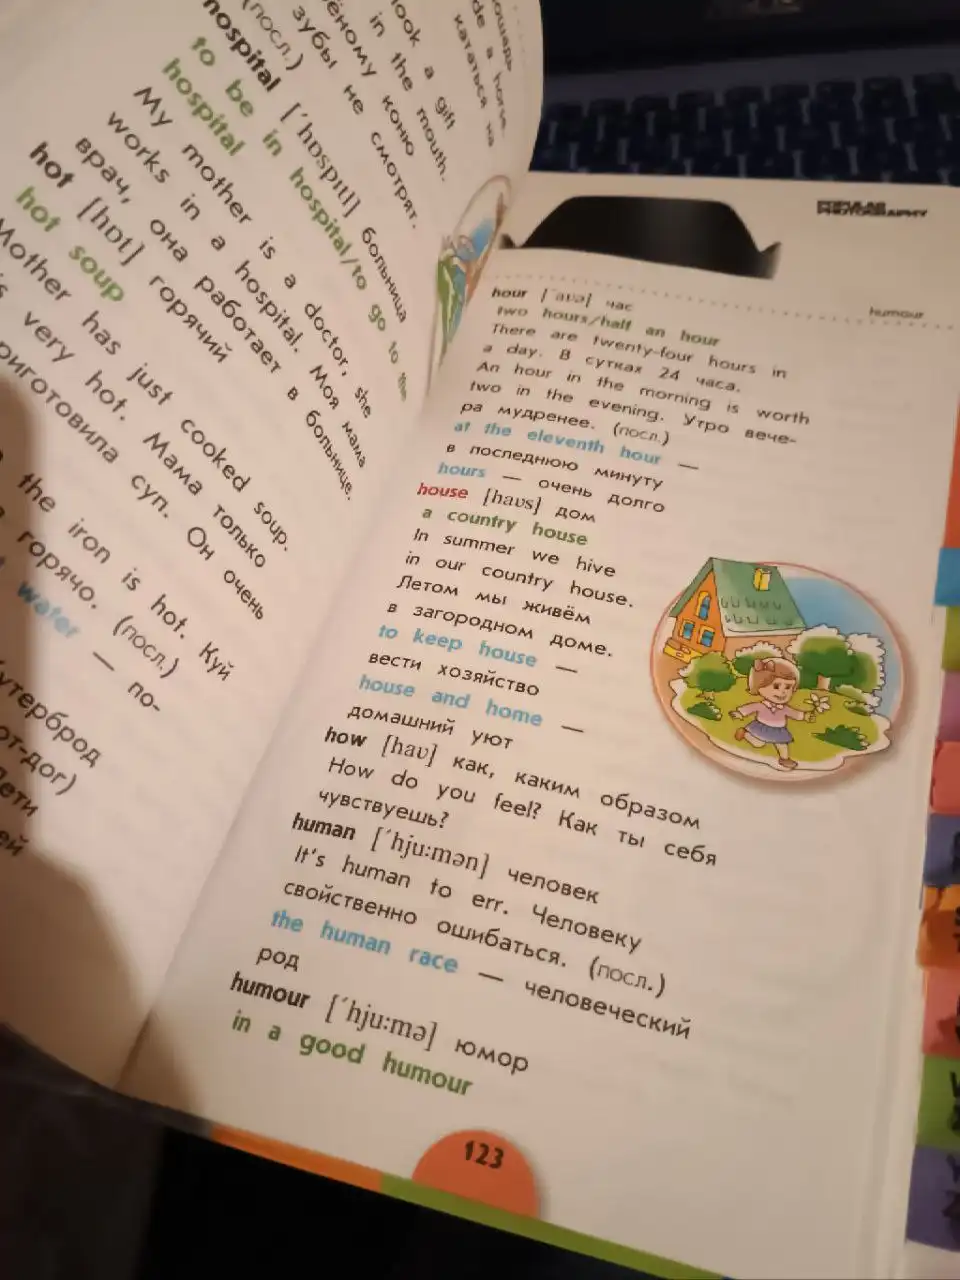 лошадь
de a horse.
кататься на
look a gift
in the mouth.
ёному коню
зубы не смотрят.
(посл.)
hospital [ˈhɒspɪtl] больница
to be in hospital/to go to the
hospital
My mother is a doctor, she
works in a hospital. Моя мама
врач, она работает в больнице.
hot [hɒt] горячий
hot soup
Mother has just cooked soup.
s very hot. Мама только
риготовила суп. Он очень
the iron is hot. Куй
горячо. (посл.)
water — по-
утерброд
от-дог)
Дети
ей
POPULAR
PHOTOGRAPHY
humour
hour [ˈaʊə] час
two hours/half an hour
There are twenty-four hours in
a day. В сутках 24 часа.
An hour in the morning is worth
two in the evening. Утро вече-
ра мудренее. (посл.)
at the eleventh hour —
в последнюю минуту
hours — очень долго
house [haʊs] дом
a country house
In summer we hive
in our country house.
Летом мы живём
в загородном доме.
to keep house —
вести хозяйство
house and home —
домашний уют
how [haʊ] как, каким образом
How do you feel? Как ты себя
чувствуешь?
human [ˈhju:mən] человек
It's human to err. Человеку
свойственно ошибаться. (посл.)
the human race — человеческий
род
humour [ˈhju:mə] юмор
in a good humour
123